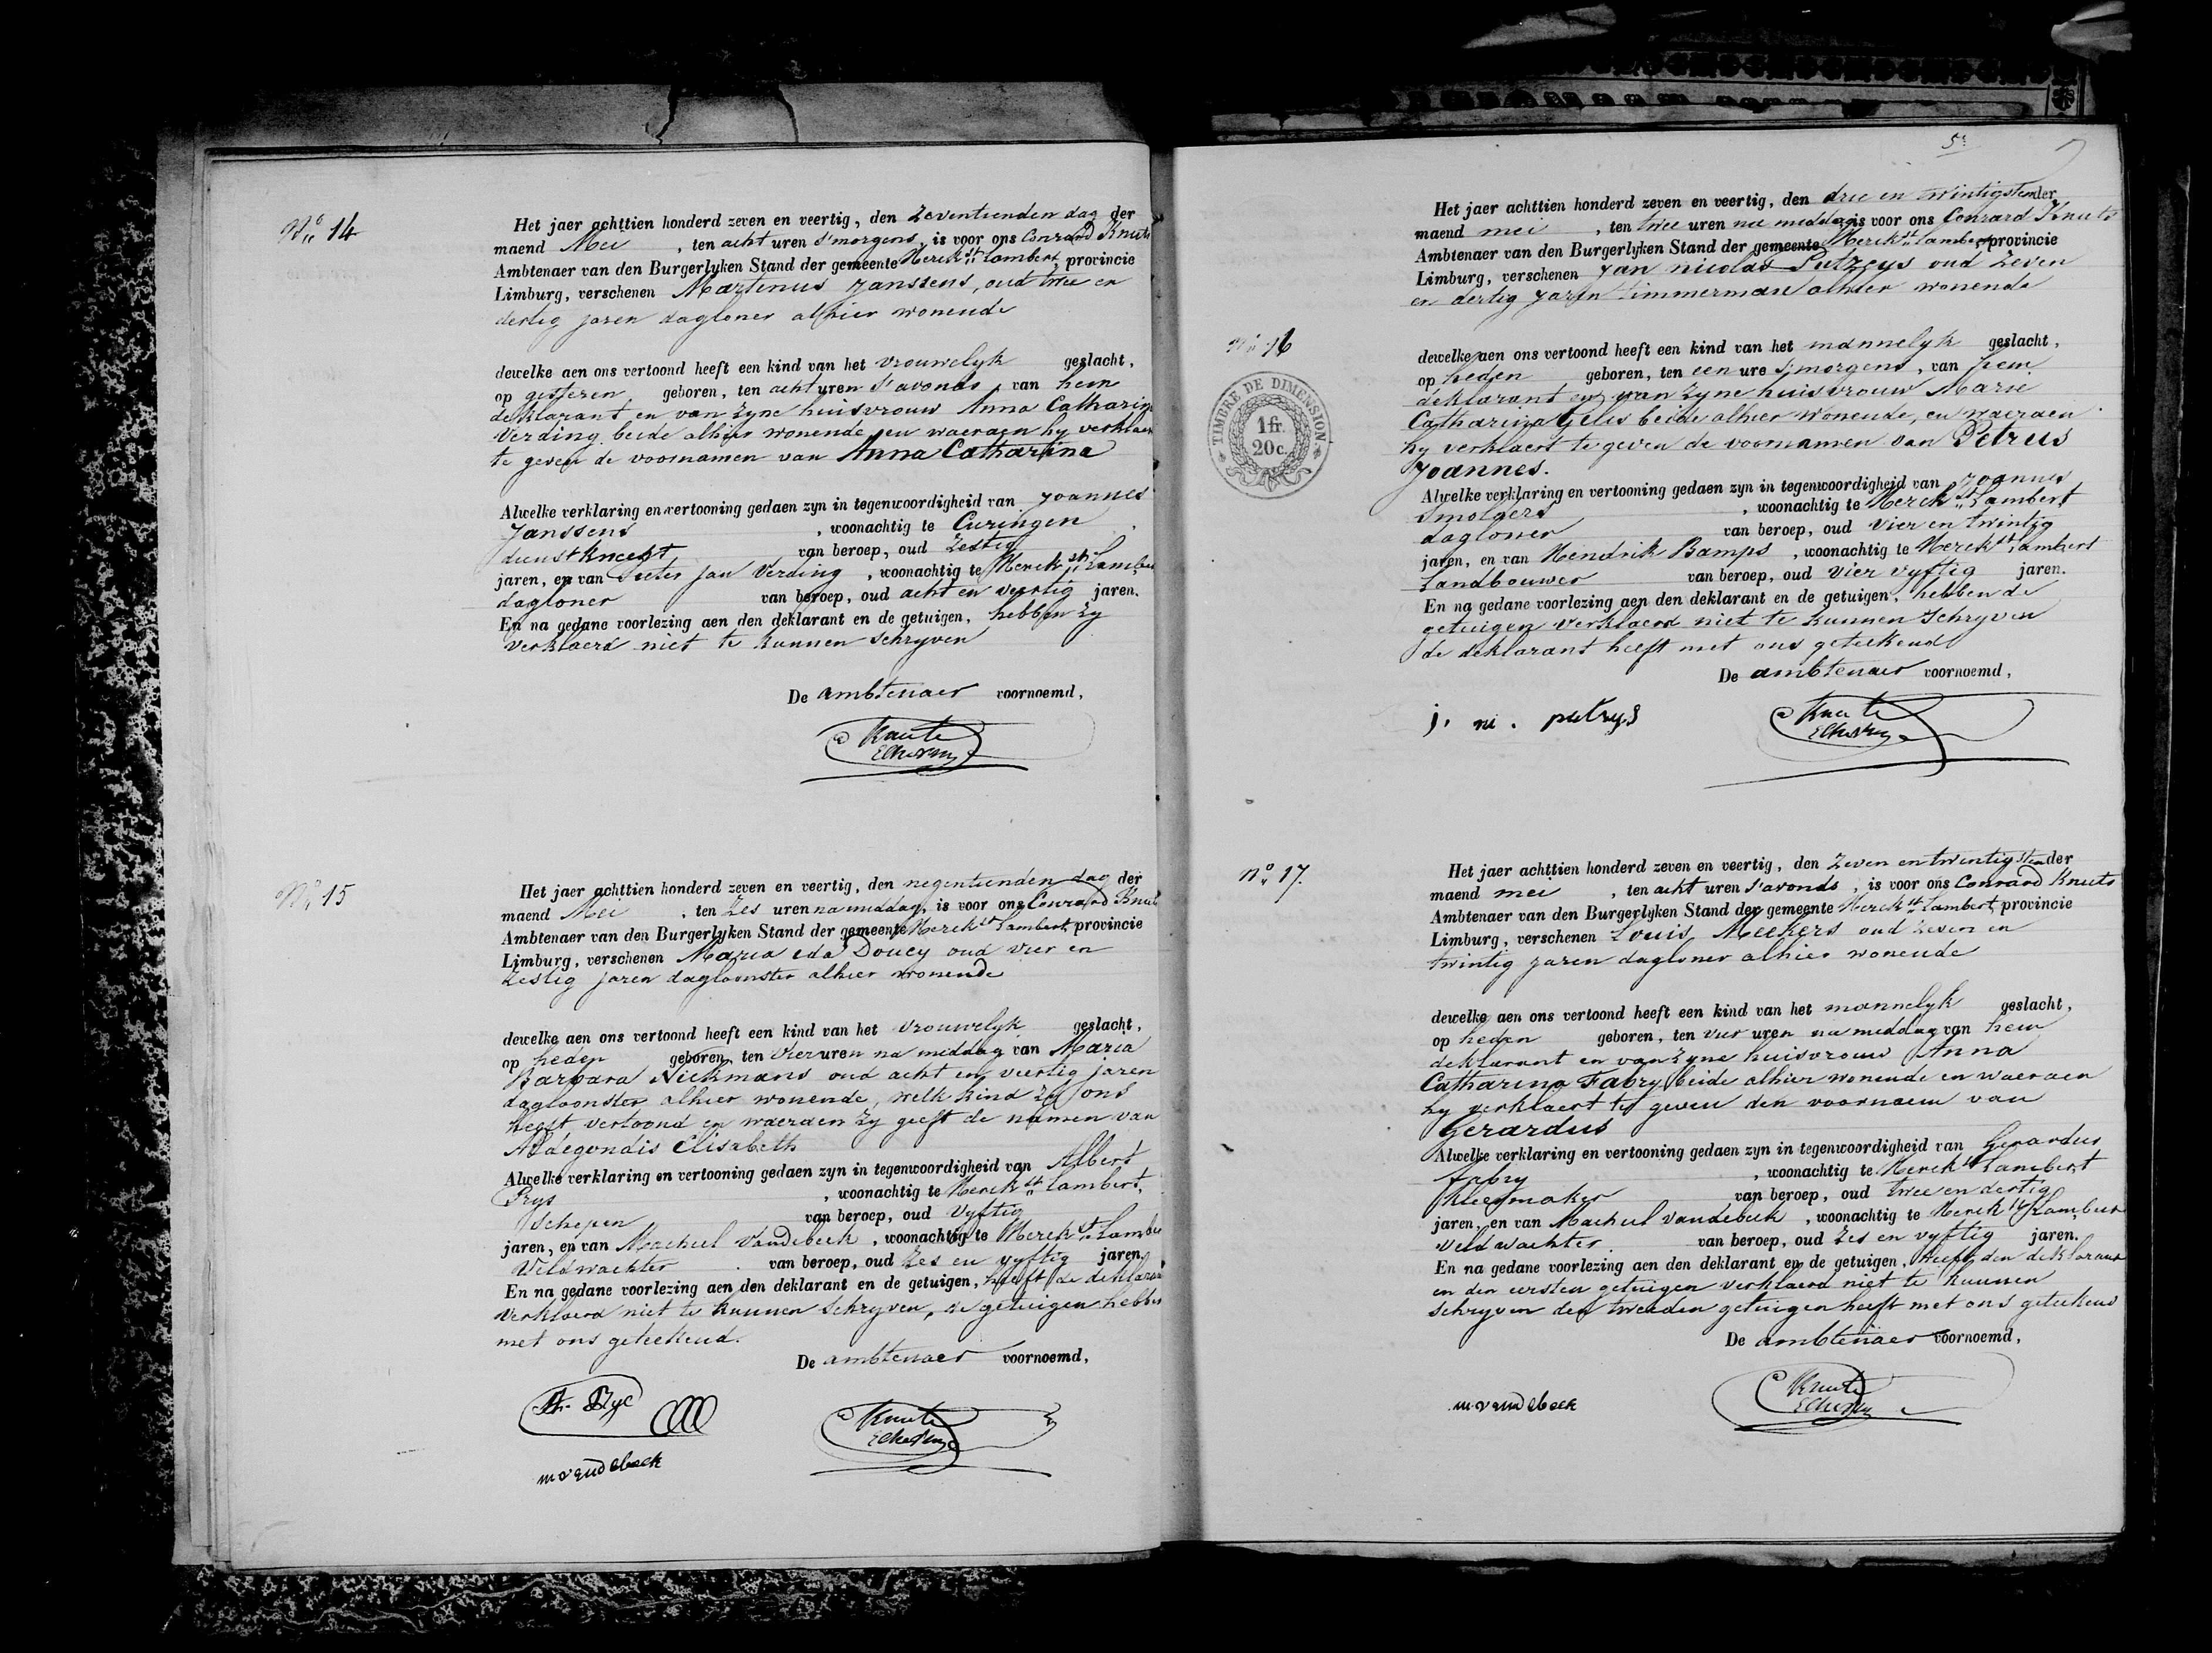 Nº 14
Het jaer achttien honderd zeven en veertig, den zeventienden dag der
maend Mei , ten acht uren s'morgens, is voor ons Conrard Knuts
Ambtenaer van den Burgerlyken Stand der gemeente Herck st Lambert, provincie
Limburg, verschenen Martinus Janssens, oud twee en
dertig jaren dagloner alhier wonende
dewelke aen ons vertoond heeft een kind van het vrouwelyk geslacht,
op gisteren geboren, ten acht uren s'avonds, van hem
deklarant en van zyne huisvrouw Anna Catharin
Verding beide alhier wonende, en waeraen hy verklaer
te geven de voornamen van Anna Catharina
Alwelke verklaring en vertooning gedaen zyn in tegenwoordigheid van Joannes
Janssens , woonachtig te Curingen
dienstknecht van beroep, oud zestig
jaren, en van Pieter Jan Verding , woonachtig te Herck st Lamber
dagloner van beroep, oud acht en veertig jaren.
En na gedane voorlezing aen den deklarant en de getuigen, hebben zy
verklaerd niet te kunnen schryven
De ambtenaer voornoemd,
C Knuts
Echevin
Nº 15
Het jaer achttien honderd zeven en veertig, den negentienden dag der
maend Mei , ten zes uren na middag, is voor ons Conrard Knuts
Ambtenaer van den Burgerlyken Stand der gemeente Herck st Lambert, provincie
Limburg, verschenen Maria ida Doucy oud vier en
zestig jaren dagloonster alhier wonende
dewelke aen ons vertoond heeft een kind van het vrouwelyk geslacht,
op heden geboren, ten vier uren na middag van Maria
Barbara Nickmans oud acht en veertig jaren
dagloonster alhier wonende, welk kind zy ons
heeft vertoond en waeraen zy geeft de namen van
Aldegondis Elisabeth
Alwelke verklaring en vertooning gedaen zyn in tegenwoordigheid van Albert
Prys , woonachtig te Herck st Lambert,
Schepen van beroep, oud vyftig
jaren, en van Machiel Vandebeek , woonachtig te Herck st Lamber
Veldwachter van beroep, oud zes en vyftig jaren.
En na gedane voorlezing aen den deklarant en de getuigen, heeft de deklaran
verklaerd niet te kunnen schryven, de getuigen hebben
met ons geteekend.
De ambtenaer voornoemd,
C Knuts
Echevin
m vandebeek
5
Nº 16
TIMBRE DE DIMENSION
1 fr.
20 c.
Het jaer achttien honderd zeven en veertig, den drie en twintigsten der
maend mei , ten twee uren na middag is voor ons Conrard Knuts
Ambtenaer van den Burgerlyken Stand der gemeente Herck st Lambert, provincie
Limburg, verschenen Jan nicolas Putzeys oud zeven
en dertig jaren timmerman alhier wonende
dewelke aen ons vertoond heeft een kind van het mannelyk geslacht,
op heden geboren, ten een ure s'morgens, van hem
deklarant en van zyne huisvrouw Marie
Catharina Gelis beide alhier wonende, en waeraen
hy verklaert te geven de voornamen van Petrus
Joannes.
Alwelke verklaring en vertooning gedaen zyn in tegenwoordigheid van Joannes
Smolders , woonachtig te Herck st Lambert
dagloner van beroep, oud vier en twintig
jaren, en van Hendrik Bamps , woonachtig te Herck st Lambert
Landbouwer van beroep, oud vier vyftig jaren.
En na gedane voorlezing aen den deklarant en de getuigen, hebben de
getuigen verklaerd niet te kunnen schryven
de deklarant heeft met ons geteekend
De ambtenaer voornoemd,
j. ni. putzys
C Knuts
Echevin
nº 17.
Het jaer achttien honderd zeven en veertig, den zeven en twintigsten der
maend mei , ten acht uren s'avonds , is voor ons Conrard Knuts
Ambtenaer van den Burgerlyken Stand der gemeente Herck st Lambert, provincie
Limburg, verschenen Louis Meekers oud zeven en
twintig jaren dagloner alhier wonende
dewelke aen ons vertoond heeft een kind van het mannelyk geslacht,
op heden geboren, ten vier uren na middag van hem
deklarant en van zyne huisvrouw Anna
Catharina Fabry beide alhier wonende en waeraen
hy verklaert te geven den voornaem van
Gerardus
Alwelke verklaring en vertooning gedaen zyn in tegenwoordigheid van Gerardus
fabry , woonachtig te Herck st Lambert
kleermaker van beroep, oud twee en dertig
jaren, en van Machiel Vandebeek , woonachtig te Herck st Lambert
veldwachter van beroep, oud zes en vyftig jaren.
En na gedane voorlezing aen den deklarant en de getuigen, heeft den deklarant
en den eersten getuigen verklaerd niet te kunnen
schryven den tweeden getuigen heeft met ons geteekend
De ambtenaer voornoemd,
m vandebeek
C Knuts
Echevin